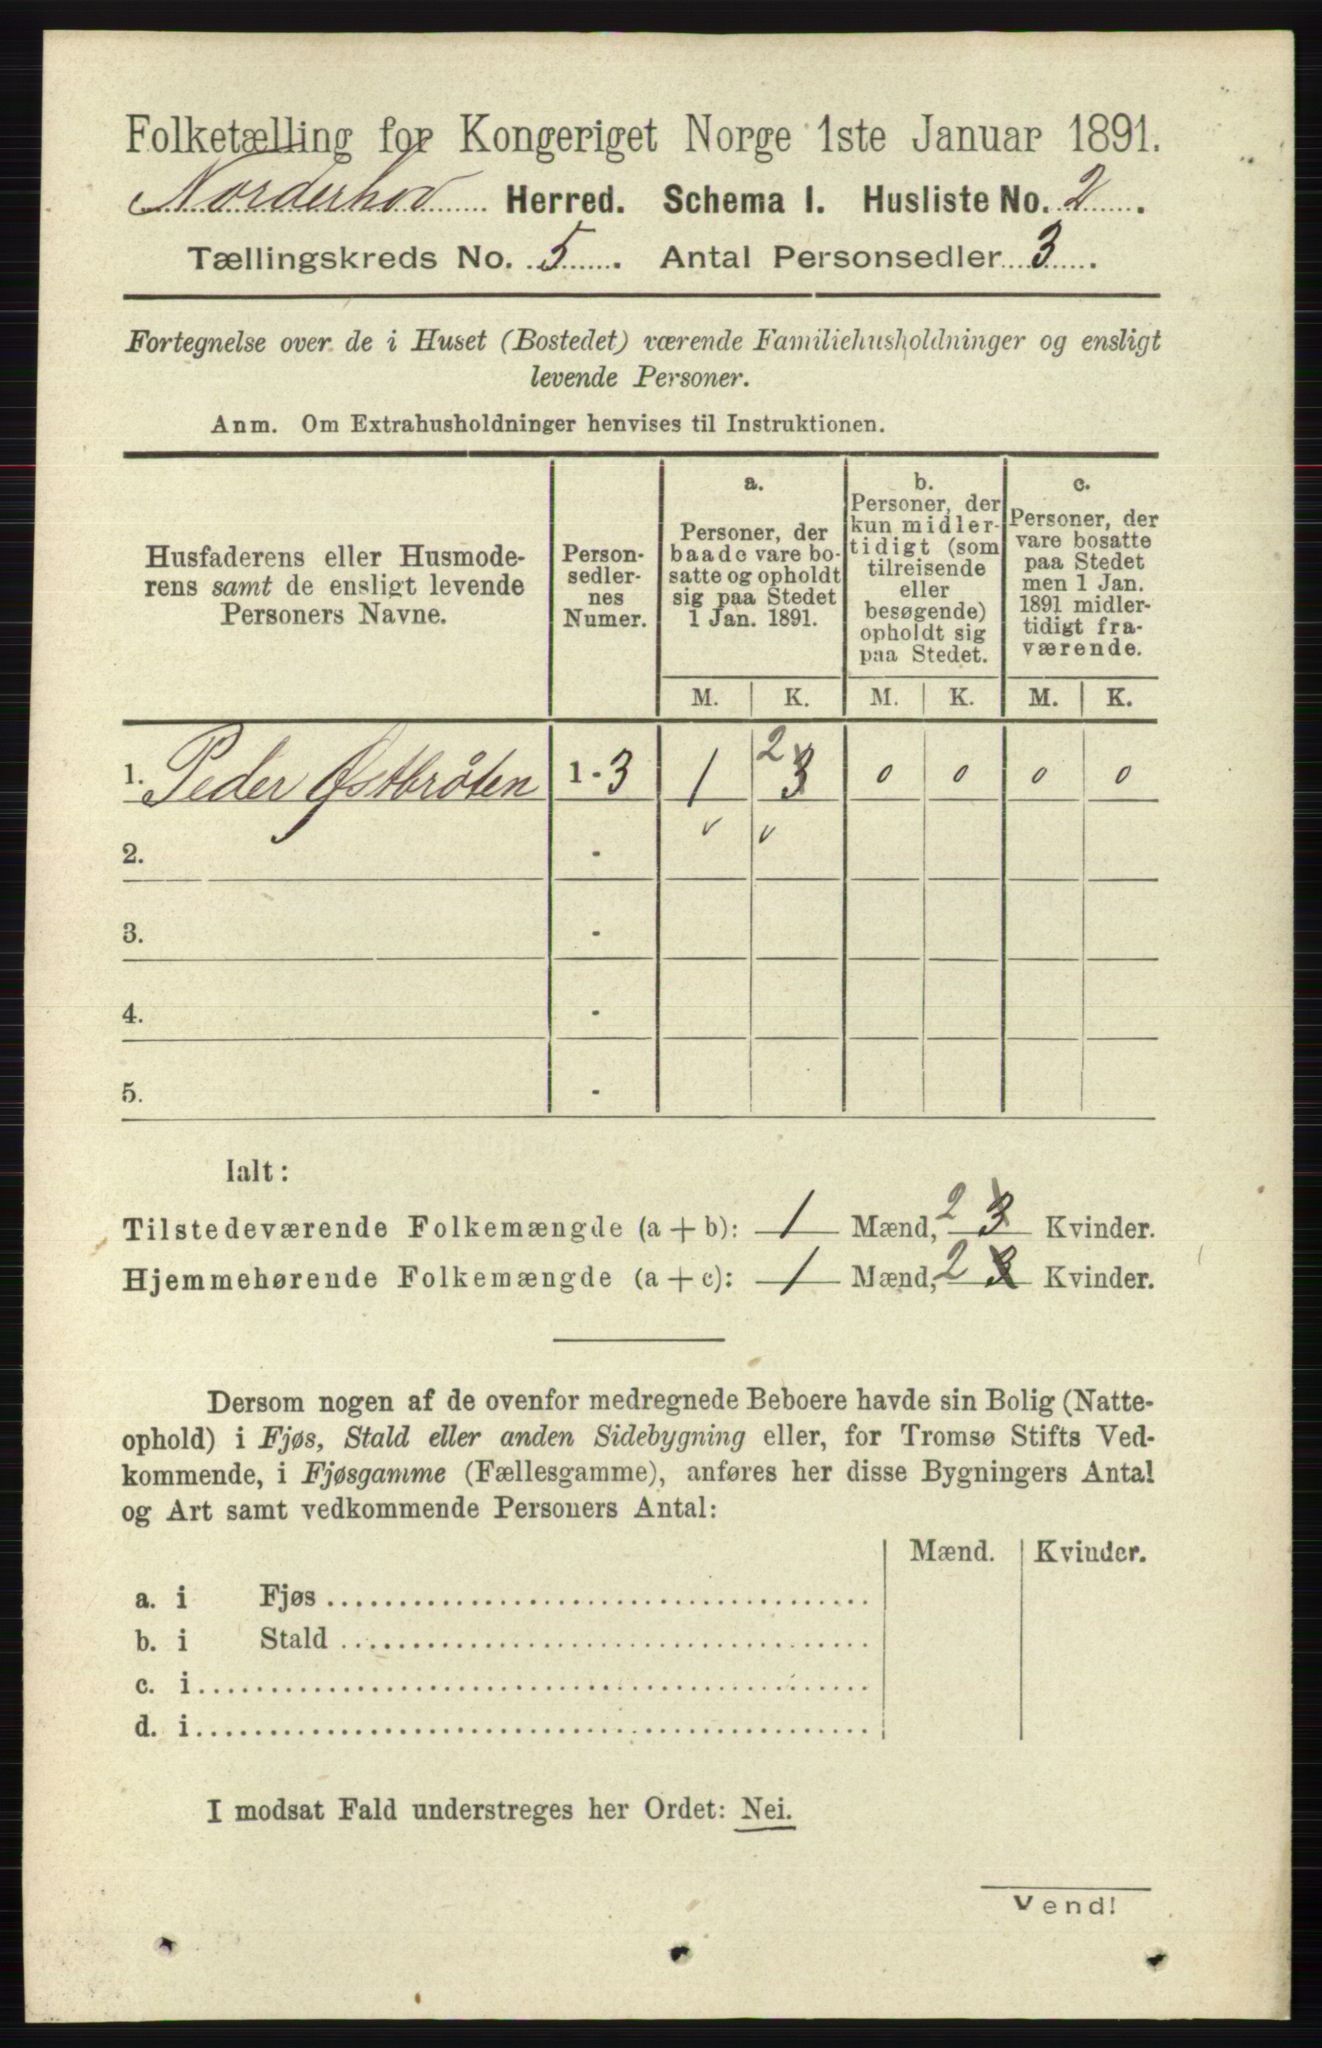 Folketælling for Kongeriget Norge 1ste Januar 1891.
Norderhov Herred. Schema I. Husliste No. 2.
Tællingskreds No. 5. Antal Personsedler 3.
Fortegnelse over de i Huset (Bostedet) værende Familiehusholdninger og ensligt
levende Personer.
Anm. Om Extrahusholdninger henvises til Instruktionen.
Husfaderens eller Husmode-
rens samt de ensligt levende
Personers Navne.
Person-
sedler-
nes
Numer.
a.
Personer, der
baade vare bo-
satte og opholdt
sig paa Stedet
1 Jan. 1891.
b.
Personer, der
kun midler-
tidigt (som
tilreisende
eller
besøgende)
opholdt sig
paa Stedet.
c.
Personer, der
vare bosatte
paa Stedet
men 1 Jan.
1891 midler-
tidigt fra-
værende.
M. K. M. K. M. K.
1. Peder Østbråten 1-3 1 2 3 0 0 0 0
2. -
3. -
4. -
5. -
Ialt:
Tilstedeværende Folkemængde (a + b): 1 Mænd, 2 3 Kvinder.
Hjemmehørende Folkemængde (a + c): 1 Mænd, 2 3 Kvinder.
Dersom nogen af de ovenfor medregnede Beboere havde sin Bolig (Natte-
ophold) i Fjøs, Stald eller anden Sidebygning eller, for Tromsø Stifts Ved-
kommende, i Fjøsgamme (Fællesgamme), anføres her disse Bygningers Antal
og Art samt vedkommende Personers Antal:
Mænd. Kvinder.
a. i Fjøs
b. i Stald
c. i
d. i
I modsat Fald understreges her Ordet: Nei.
Vend!